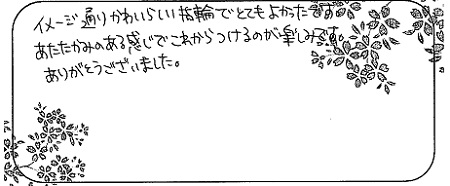 イメージ通りかわいらしい指輪でとてもよかったです。
あたたかみのある感じでこれからつけるのが楽しみです。
ありがとうございました。